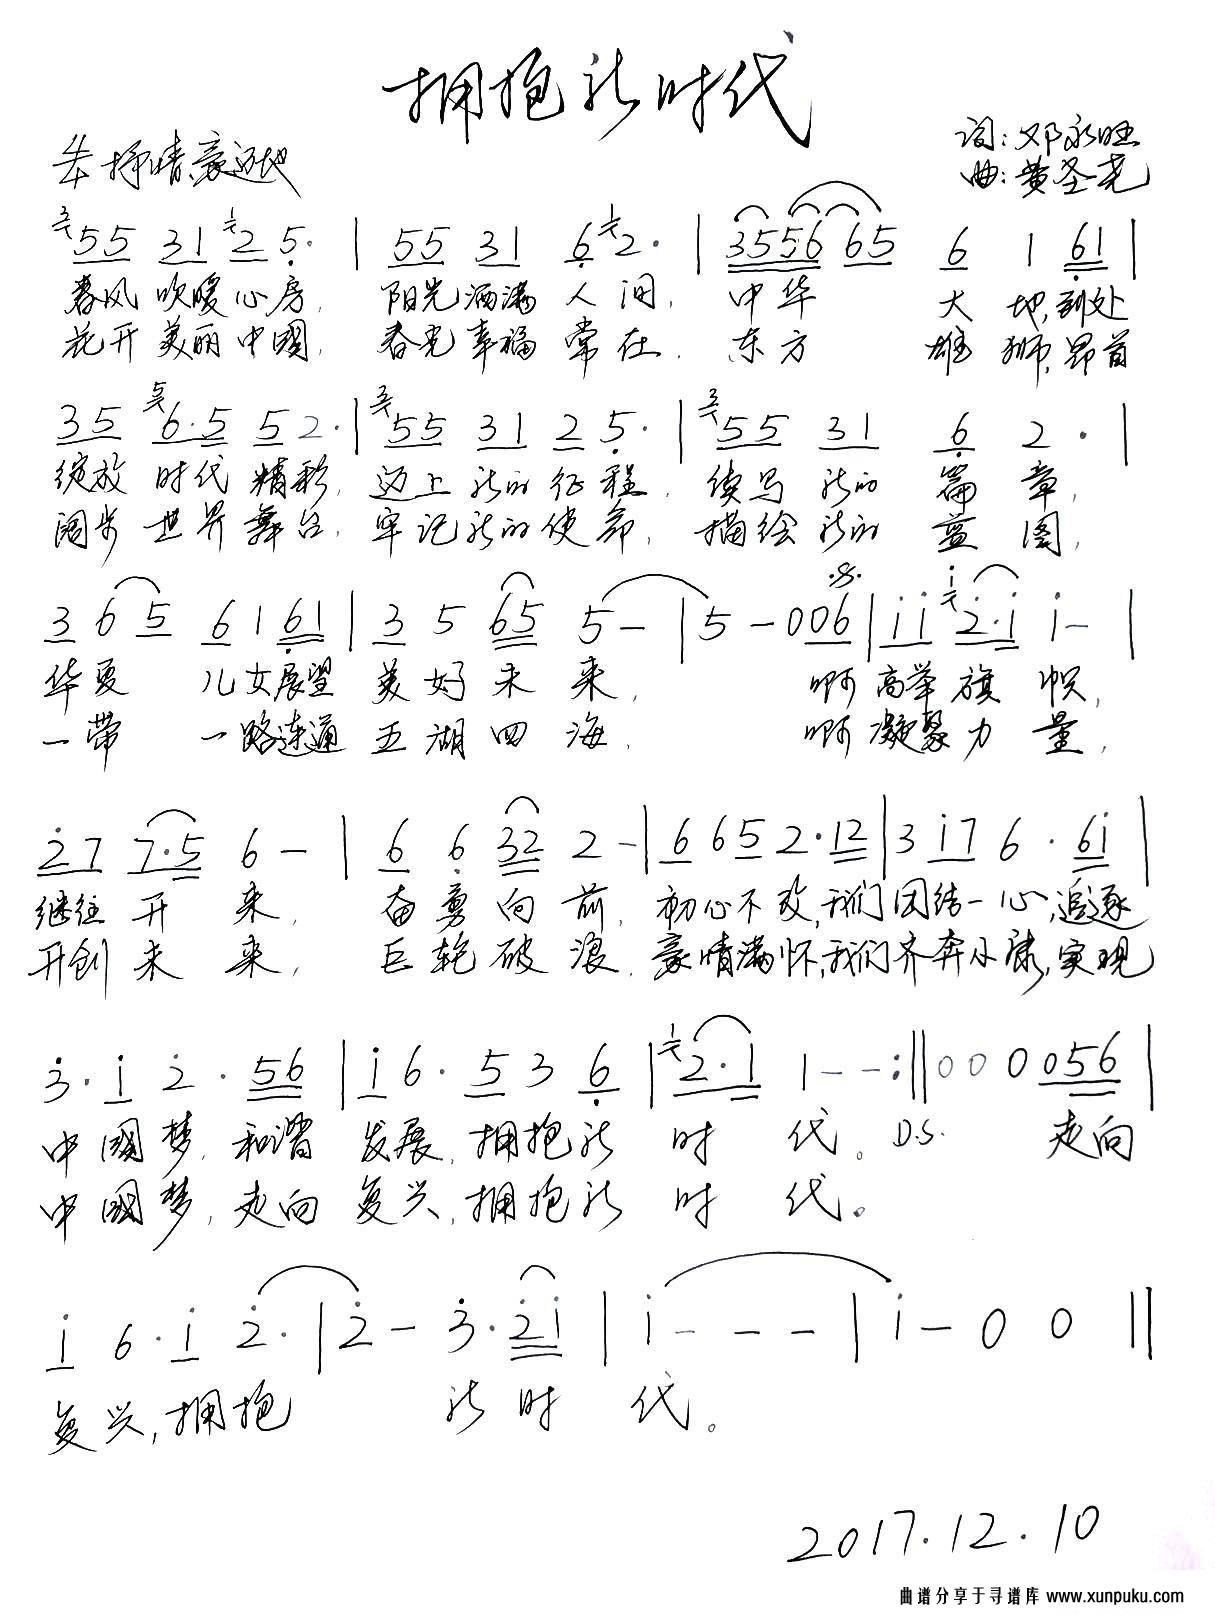 拥抱新时代
词:邓永旺
4/4 抒情、豪迈地
曲:黄圣尧
3 55 31 1 2 5· | 55 31 6 1 2· | 3556 65 6 1 61 |
春风吹暖心房, 阳光洒满人间, 中华大地,到处
花开美丽中國, 春光幸福常在, 东方雄狮,昂首
35 5 6·5 5 2· | 3 55 31 2 5· | 3 55 31 6 2· |
绽放时代精彩, 迈上新的征程, 续写新的篇章,
阔步世界舞台, 牢记新的使命, 描绘新的蓝图,
3 6 5 6 1 61 | 3 5 65 5 - | 5 - 0 06 | i i i 2·i i - |
华夏儿女展望美好未来, 啊高举旗帜,
一带一路连通五湖四海, 啊凝聚力量,
27 7·5 6 - | 6 6 32 2 - | 6 65 2·12 | 3 i7 6·6i |
继往开来, 奋勇向前, 初心不改,我们团结一心,追逐
开创未来, 巨轮破浪, 豪情满怀,我们齐奔小康,实现
3·i 2·56 | i 6·5 3 6 | 1 2·1 1 - - :|| 0 0 0 056 |
中國梦,和谐发展,拥抱新时代。D.S. 走向
中國梦,走向复兴,拥抱新时代。
i 6·i 2· | 2 - 3·2i | i - - - | i - 0 0 ||
复兴,拥抱新时代。
2017.12.10
曲谱分享于寻谱库 www.xunpuku.com